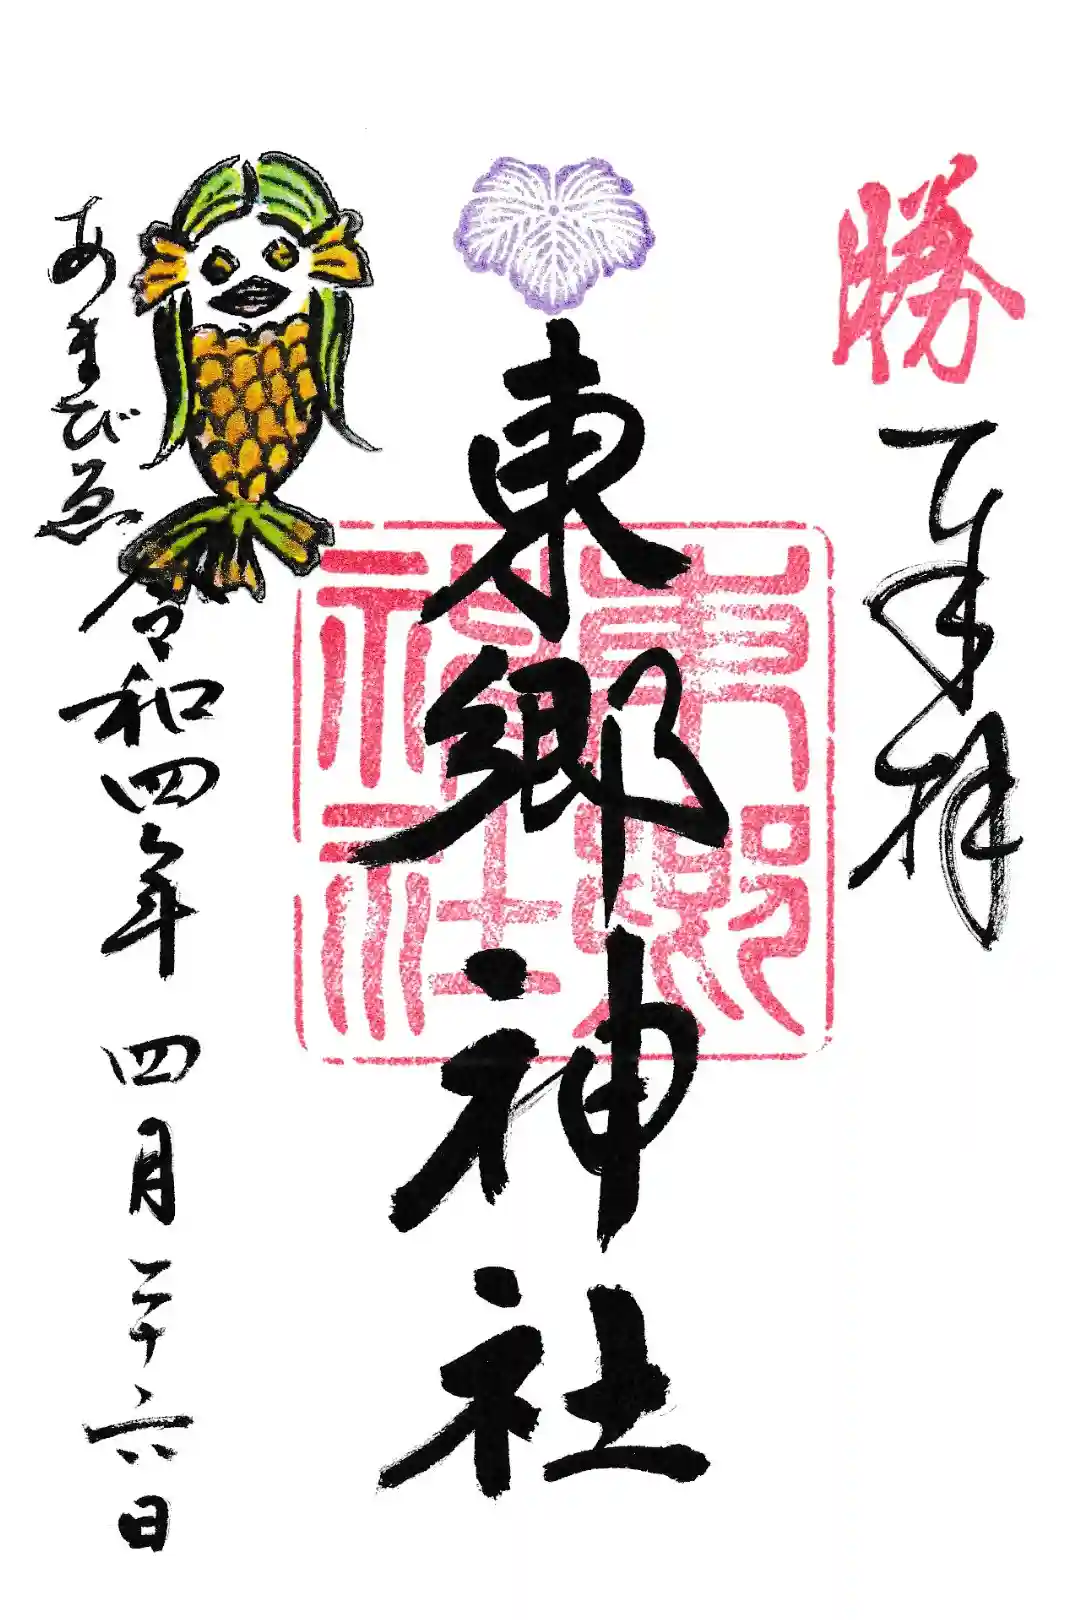 勝
奉拝
東郷神社
東郷
神社
あまびゑ
令和四年 四月二十六日